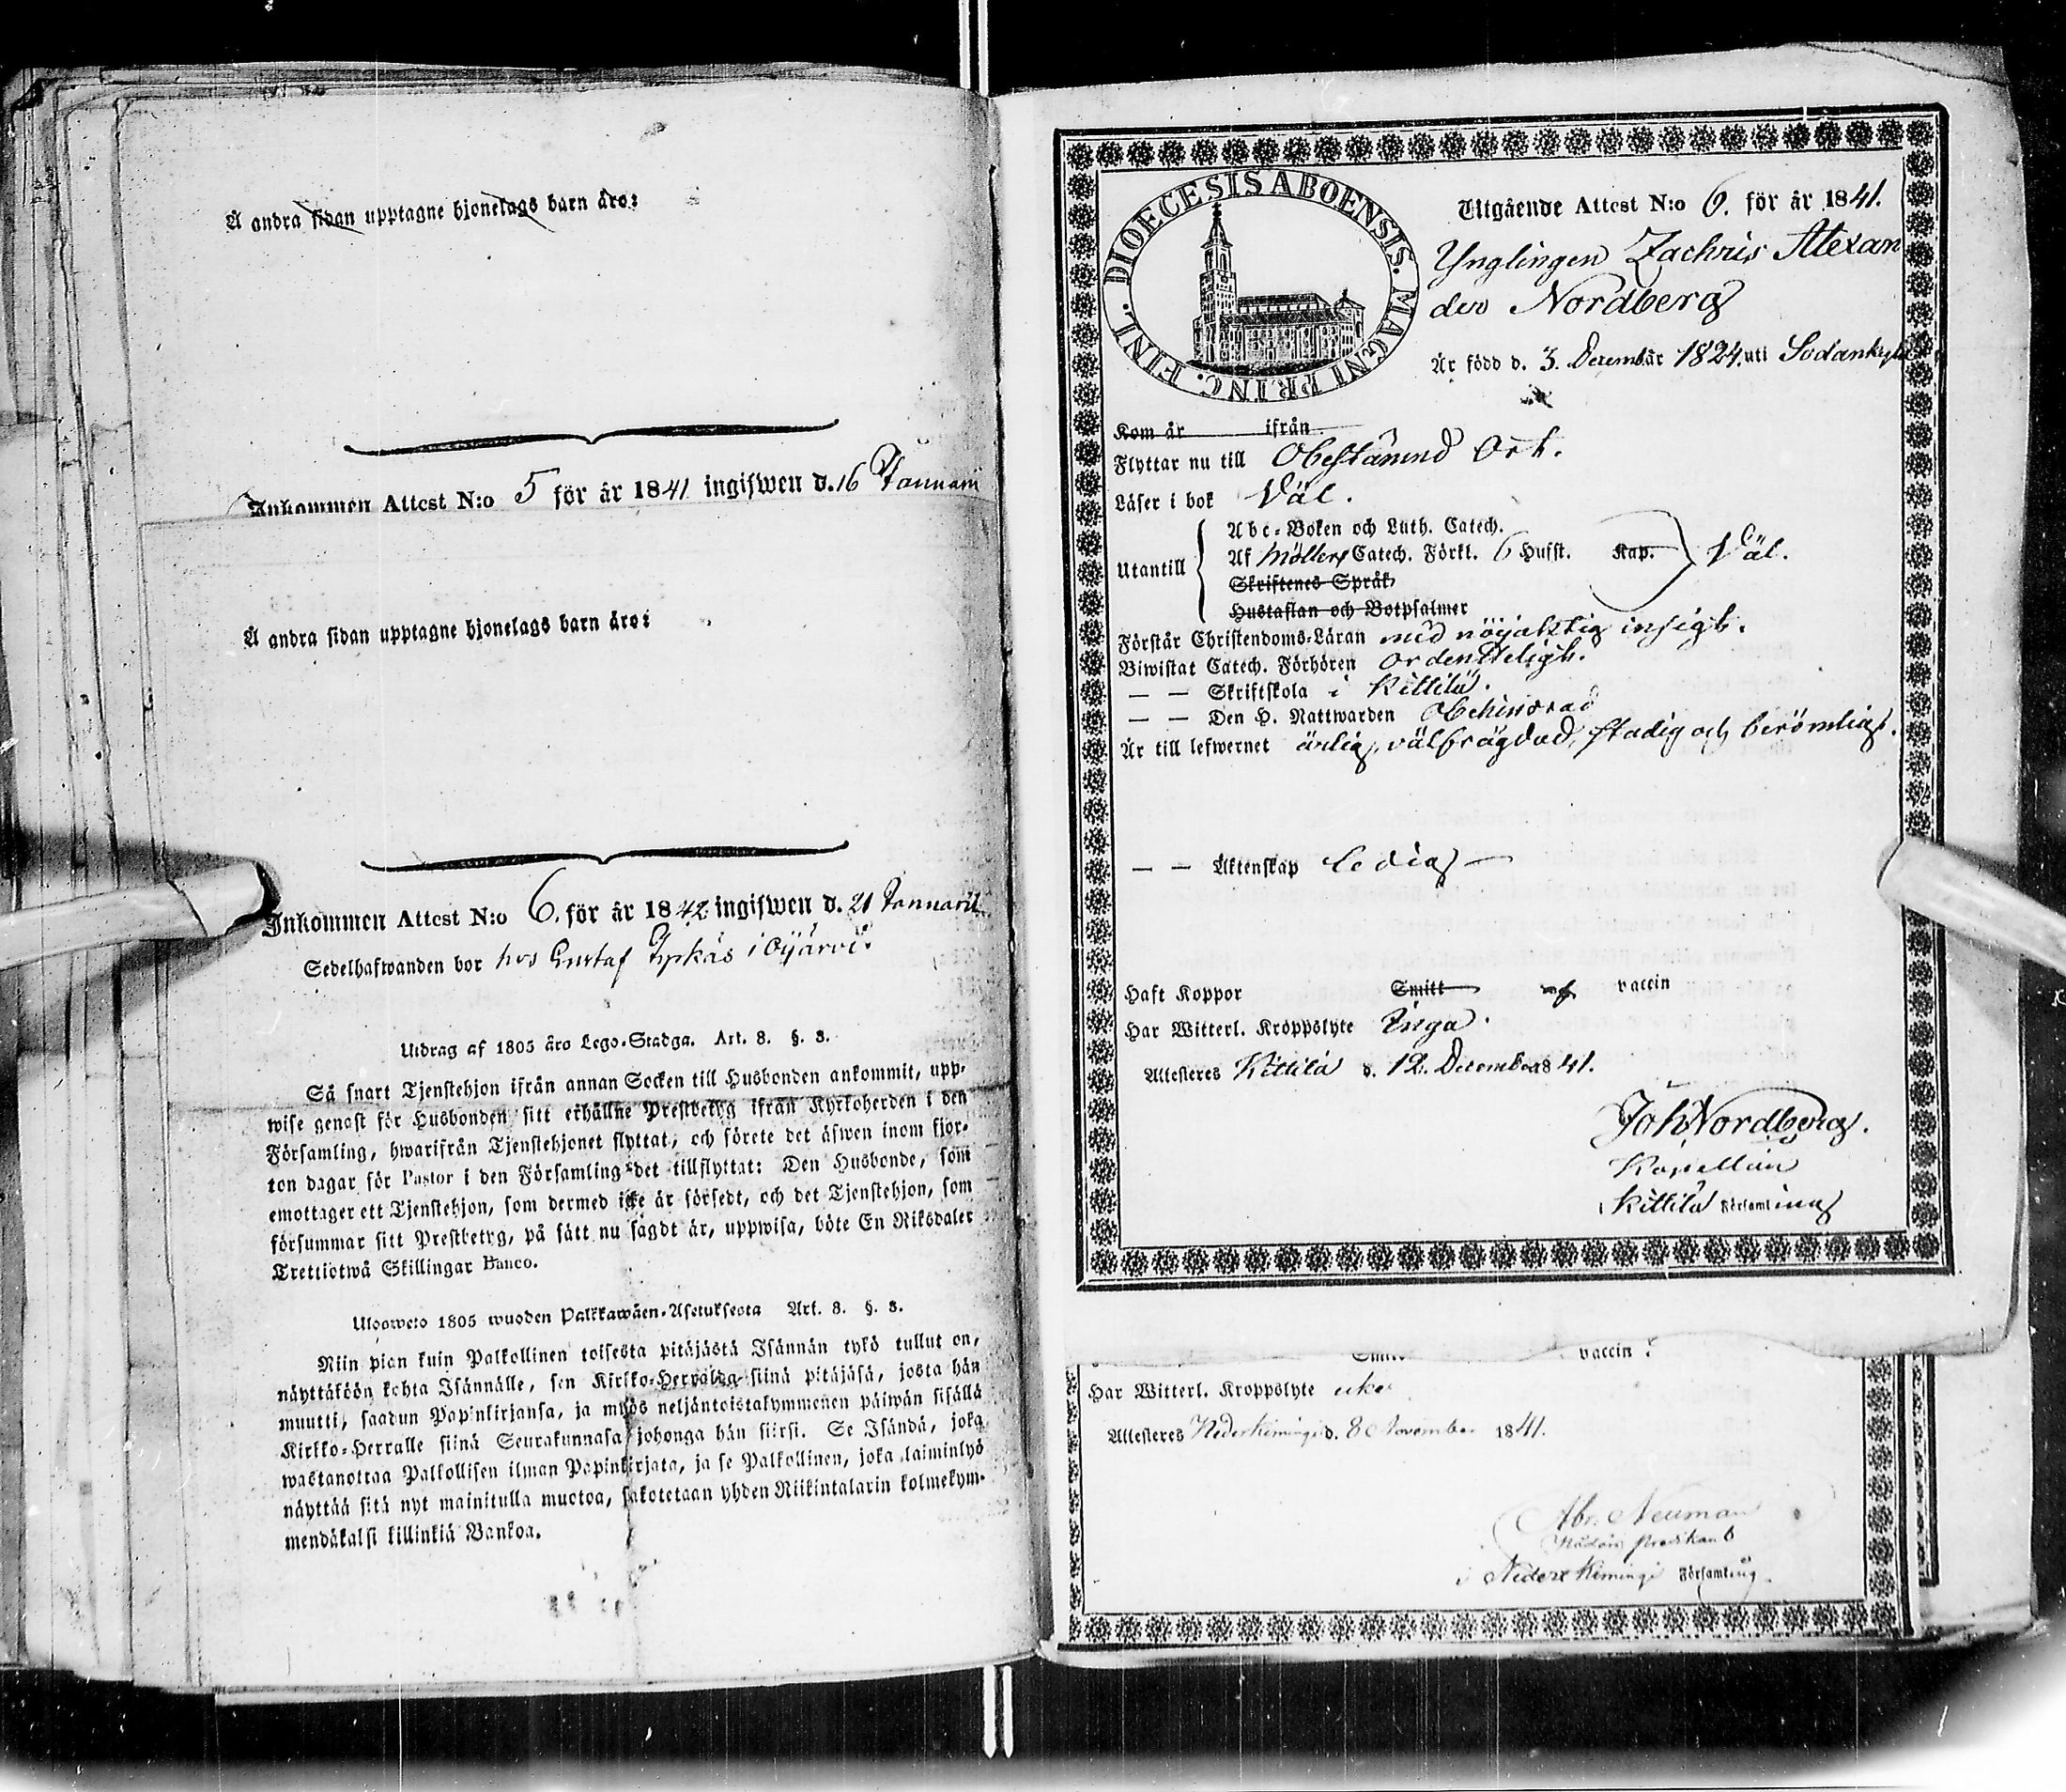 Å andra sidan upptagne hjonelags barn äro:
Inkommen Attest N:o 5 för år 1841 ingifwen d. 16 Januari
Å andra sidan upptagne hjonelags barn äro:
Inkommen Attest N:o 6. för år 1842 ingifwen d. 21 Januarii
Sedelhafwanden bor hos Gustaf i Oijärvi
Utdrag af 1805 års Lego-Stadga. Art. 8. §. 3.
Så snart Tjenstehjon ifrån annan Socken till Husbonden ankommit, upp-
wise genast för Husbonden sitt erhållne Prestbetyg ifrån Kyrkoherden i den
Församling, hwarifrån Tjenstehjonet flyttat, och förete det äfwen inom fjor-
ton dagar för Pastor i den Församling det tillflyttat: Den Husbonde, som
emottager ett Tjenstehjon, som dermed icke är försedt, och det Tjenstehjon, som
försummar sitt Prestbetyg, på sätt nu sagdt är, uppwisa, böte En Riksdaler
Trettiotwå Skillingar Banco.
Ulosweto 1805 wuoden Palkkawäen-Asetuksesta Art. 8. §. 3.
Niin pian kuin Palkollinen toisesta pitäjästä Isännän tykö tullut on,
näyttäköön kohta Isännälle, sen Kirkko-Herralta siinä pitäjäsä, josta hän
muutti, saadun Papinkirjansa, ja myös neljäntoistakymmenen päiwän sisällä
Kirkko-Herralle siinä Seurakunnasa johonga hän siirsi. Se Isändä, joka
wastanottaa Palkollisen ilman Papinkirjata, ja se Palkollinen, joka laiminlyö
näyttää sitä nyt mainitulla muotoa, sakotetaan yhden Riikintalarin kolmekym-
mendäkaksi killinkiä Bankoa.
DIOECESIS ABOENSIS. MAGNI PRINC. FINL.
Utgående Attest N:o 6. för år 1841.
Ynglingen Zachris Alexan
der Nordberg
Är född d. 3. Decembär 1824. uti Sodankylä
Kom år ifrån
Flyttar nu till Obestämd Ort.
Läser i bok Väl.
Utantill
Abc-Boken och Luth. Catech.
Af Möllers Catech. Förkl. 6 Hufst. Kap. Väl.
Skriftenes Språk
Hustaflan och Botpsalmer
Förstår Christendoms-Läran med nöjaktig insigt.
Biwistat Catech. Förhören ordentteligt.
— — Skriftskola i Kittilä.
— — Den H. Nattwarden Obehindrad
Är till lefwernet ärlig, välfrägdad, stadig och berömlig.
— — Äktenskap Ledig —
Haft Koppor Smitt af vaccin
Har Witterl. Kroppslyte Inga.
Attesteres Kittilä d. 12. December 1841.
Joh Nordberg.
Kapellan
Kittilä Församling
Smitt vaccin
Har Witterl. Kroppslyte icke
Attesteres Nederkiminge d. 8 November 1841.
Abr. Neuman
Nådårs predikant
i Nederkiminge Församling